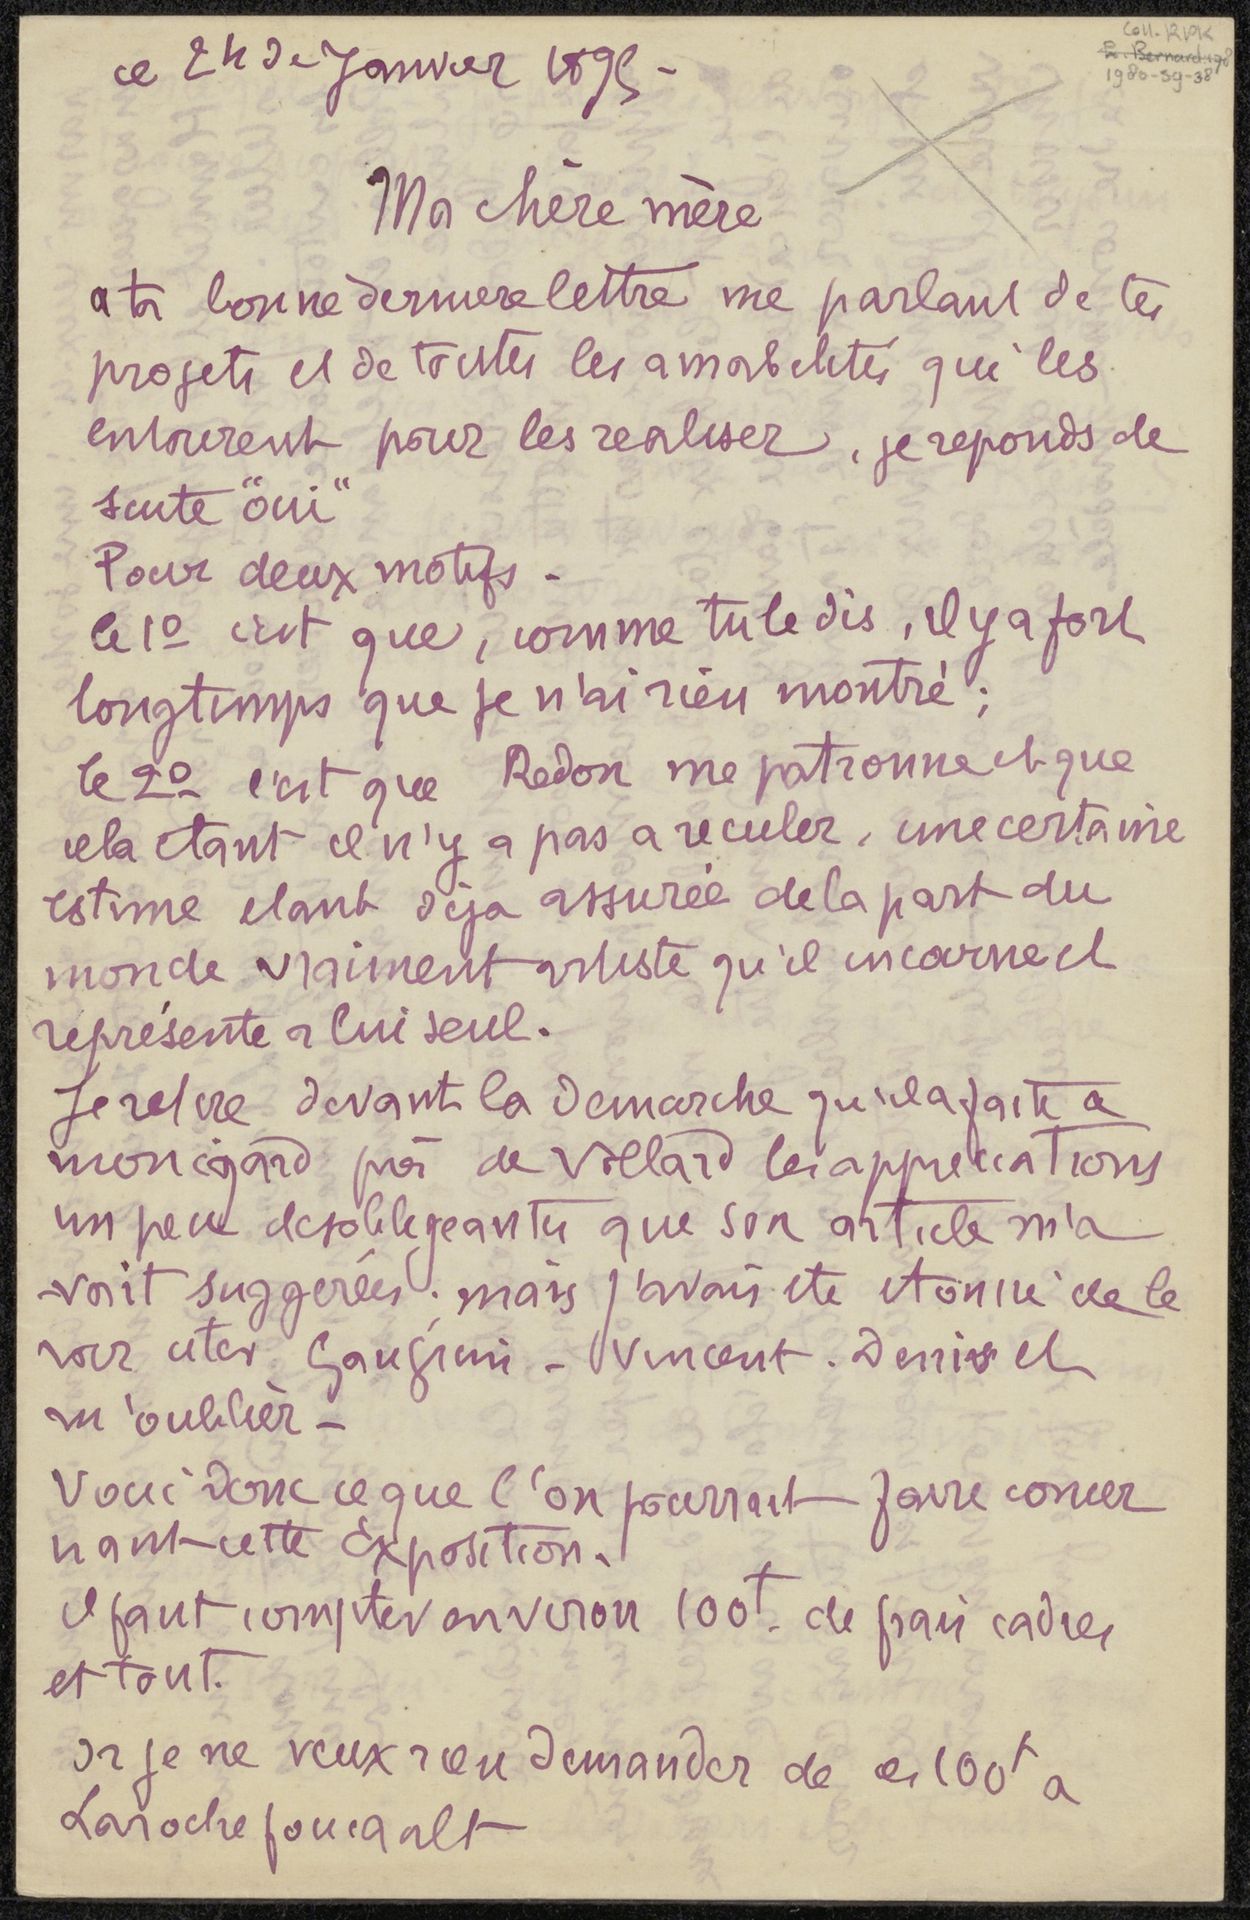 Coll. RPK
E. Bernard
1980-39-38
ce 24 de Janvier 1895 -
Ma chère mère
a ta bonne derniere lettre me parlant de tes
projets et de toutes les amabilités qui les
entourent pour les realiser, je reponds de
suite "oui"
Pour deux motifs -
le 1º c'est que, comme tu le dis, il y a fort
longtemps que je n'ai rien montré;
le 2º c'est que Redon me patronne et que
cela etant il n'y a pas a reculer, une certaine
estime etant déja assurée de la part du
monde vraiment artiste qu'il incarne et
représente a lui seul.
Je retire devant la demarche qu'il a faite a
mon égard près de Vollard les appreciations
un peu desobligeantes que son article m'a
vait suggerées. mais j'avais ete etonné de le
voir citer Gauguin - Vincent. Denis et
m'oublier -
Voici donc ce que l'on pourrait faire concer
nant cette Exposition.
il faut compter environ 100f. de frais cadres
et tout.
Or je ne veux rien demander de ces 100f a
Larochefoucaalt